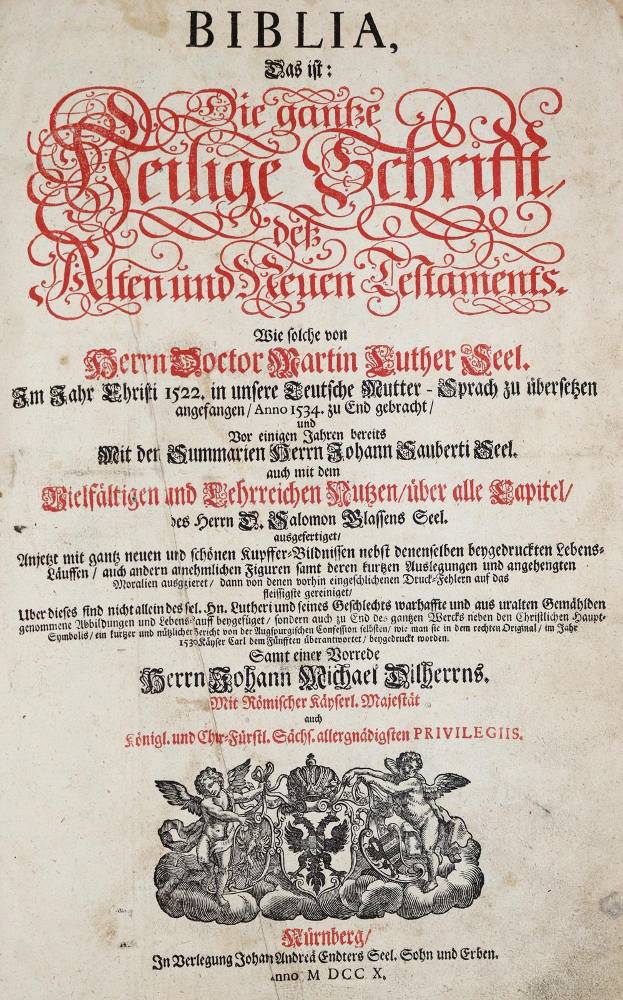 BIBLIA,
Das ist:
Die gantze
Heilige Schrifft/
deß
Alten und Neuen Testaments.
Wie solche von
Herrn Doctor Martin Luther Seel.
Im Jahr Christi 1522. in unsere Teutsche Mutter-Sprach zu übersetzen
angefangen/ Anno 1534. zu End gebracht/
und
Vor einigen Jahren bereits
Mit den Summarien Herrn Johann Sauberti Seel.
auch mit dem
Vielfältigen und Lehrreichen Nutzen/über alle Capitel/
des Herrn D. Salomon Glassens Seel.
ausgefertiget/
Anjetzt mit gantz neuen und schönen Kupffer-Bildnissen nebst denenselben beygedruckten Lebens-
Läuffen/ auch andern annehmlichen Figuren samt deren kurtzen Auslegungen und angehengten
Moralien ausgezieret/ dann von denen vorhin eingeschlichenen Druck-Fehlern auf das
fleissigste gereiniget/
Uber dieses sind nicht allein des sel. Hn. Lutheri und seines Geschlechts warhaffte und aus uralten Gemählden
genommene Abbildungen und Lebens-Lauff beygefüget/ sondern auch zu End des gantzen Wercks neben den Christlichen Haupt-
Symbolis/ ein kurtzer und nützlicher Bericht von der Augspurgischen Confession selbsten/ wie man sie in dem rechten Original/ im Jahr
1530 Käyser Carl dem Fünfften überantwortet/ beygedruckt worden.
Samt einer Vorrede
Herrn Johann Michael Dilherrns.
Mit Römischer Käyserl. Majestät
auch
Königl. und Chur-Fürstl. Sächs. allergnädigsten PRIVILEGIIS.
Nürnberg/
In Verlegung Johan Andreä Endters Seel. Sohn und Erben.
Anno M DCC X.